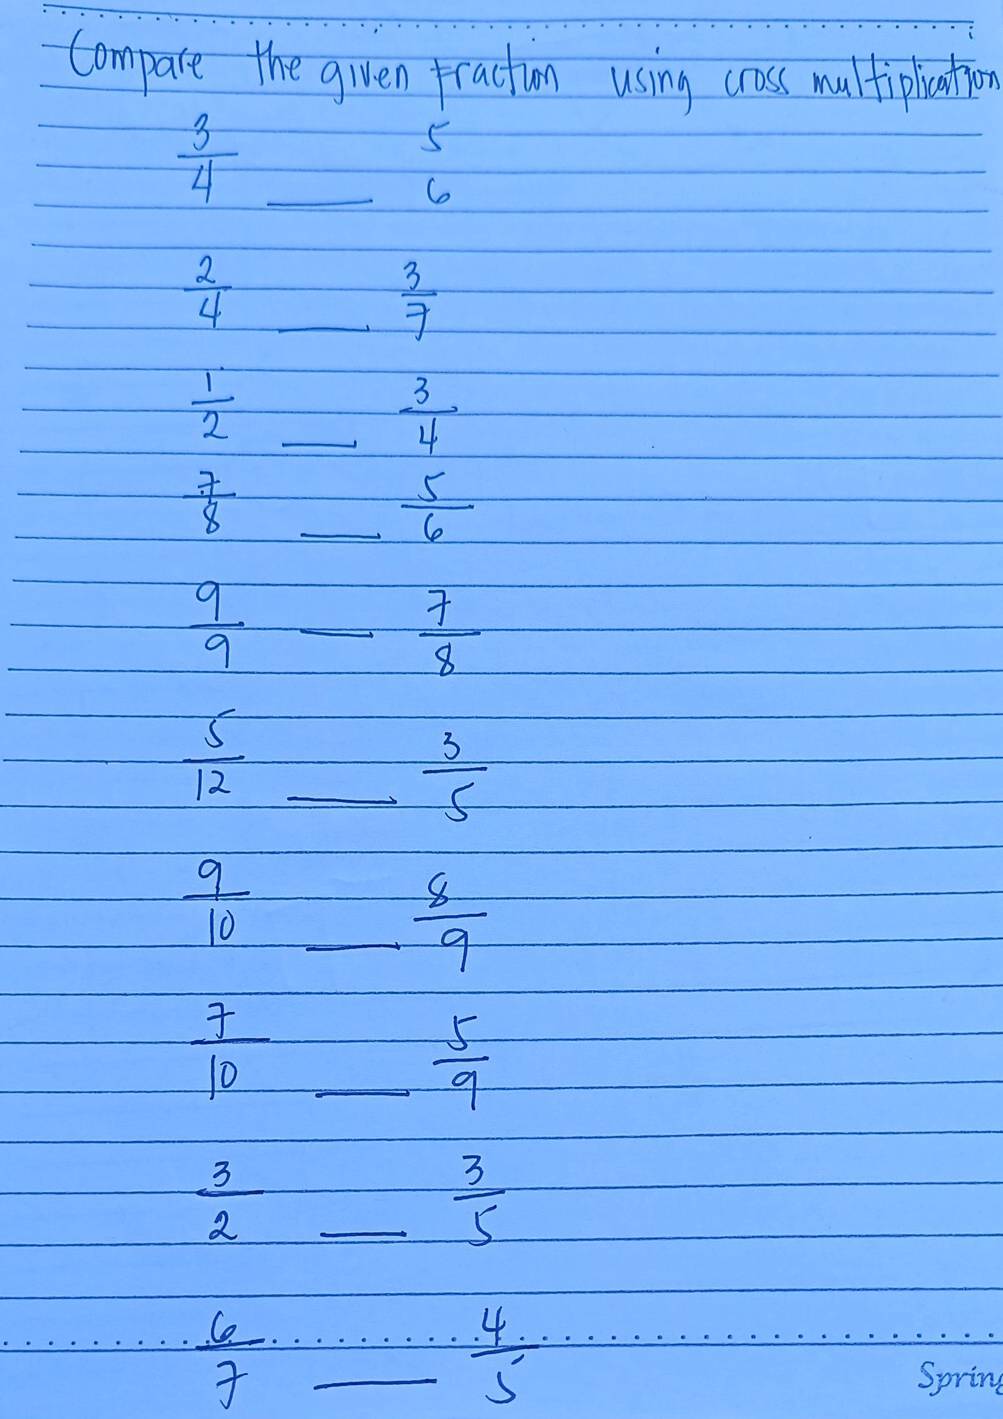 Compare the given fraction using cross multiplication
3/4 __ 5/6
2/4 __ 3/7
1/2 __ 3/4
7/8 __ 5/6
9/9 __ 7/8
5/12 __ 3/5
9/10 __ 8/9
7/10 __ 5/9
3/2 __ 3/5
6/7 __ 4/5
Spring